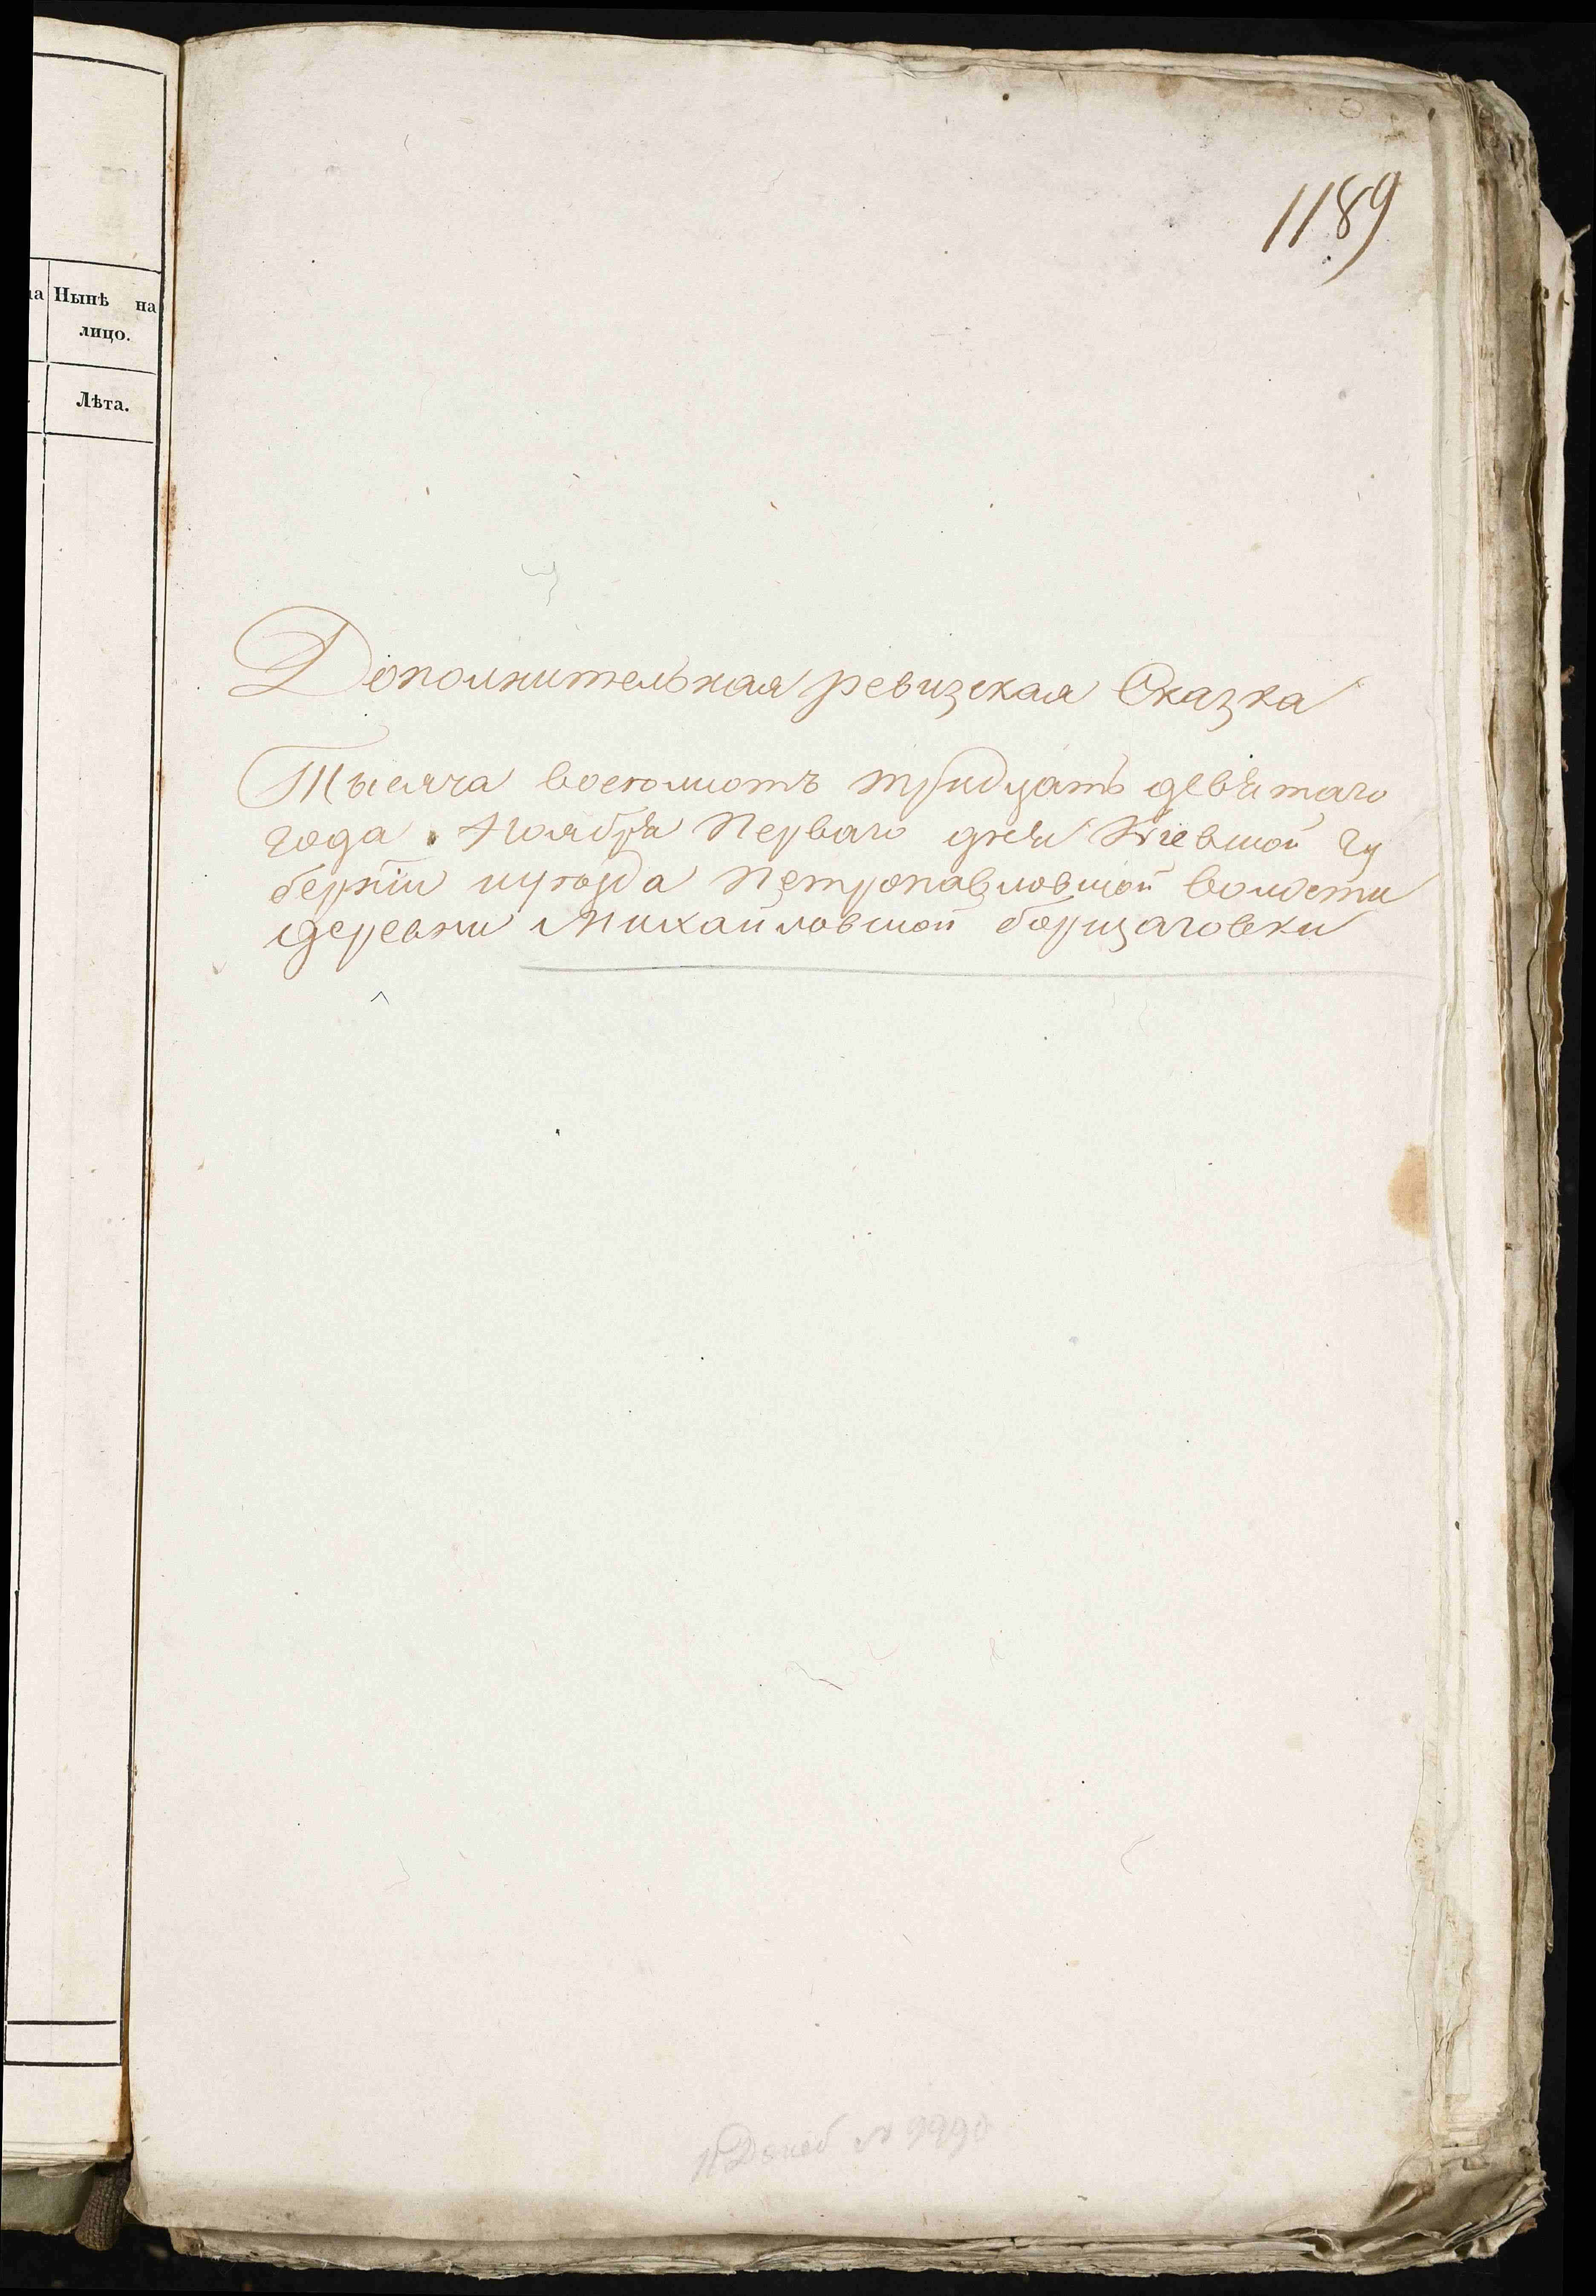 на Нынѣ на
лицо.
Лѣта.
1189
Дополнительная ревизская Сказка
Тысяча восемсотъ тридцать девятаго
года Ноября Перваго дня Кіевской гу
берніи иуѣзда Петропавловской волости
деревни Михайловской борщаговки